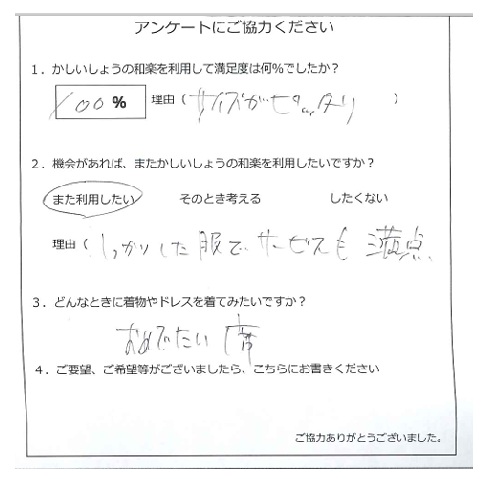 アンケートにご協力ください
1．かしいしょうの和楽を利用して満足度は何%でしたか？
100 % 理由（サイズがピッタリ）
2．機会があれば、またかしいしょうの和楽を利用したいですか？
また利用したい そのとき考える したくない
理由（しっかりした服で、サービスも満点、
3．どんなときに着物やドレスを着てみたいですか？
おめでたい席
4．ご要望、ご希望等がございましたら、こちらにお書きください
ご協力ありがとうございました。